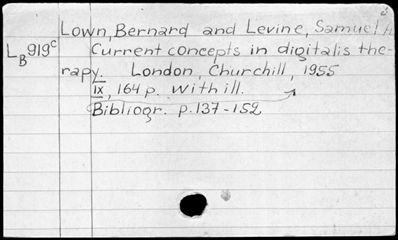 Lown, Bernard and Levine, Samuel A
L B 919c Current concepts in digitalis the-
rapy. London, Churchill, 1955
IX, 164 p. With ill.
Bibliogr. p. 137-152